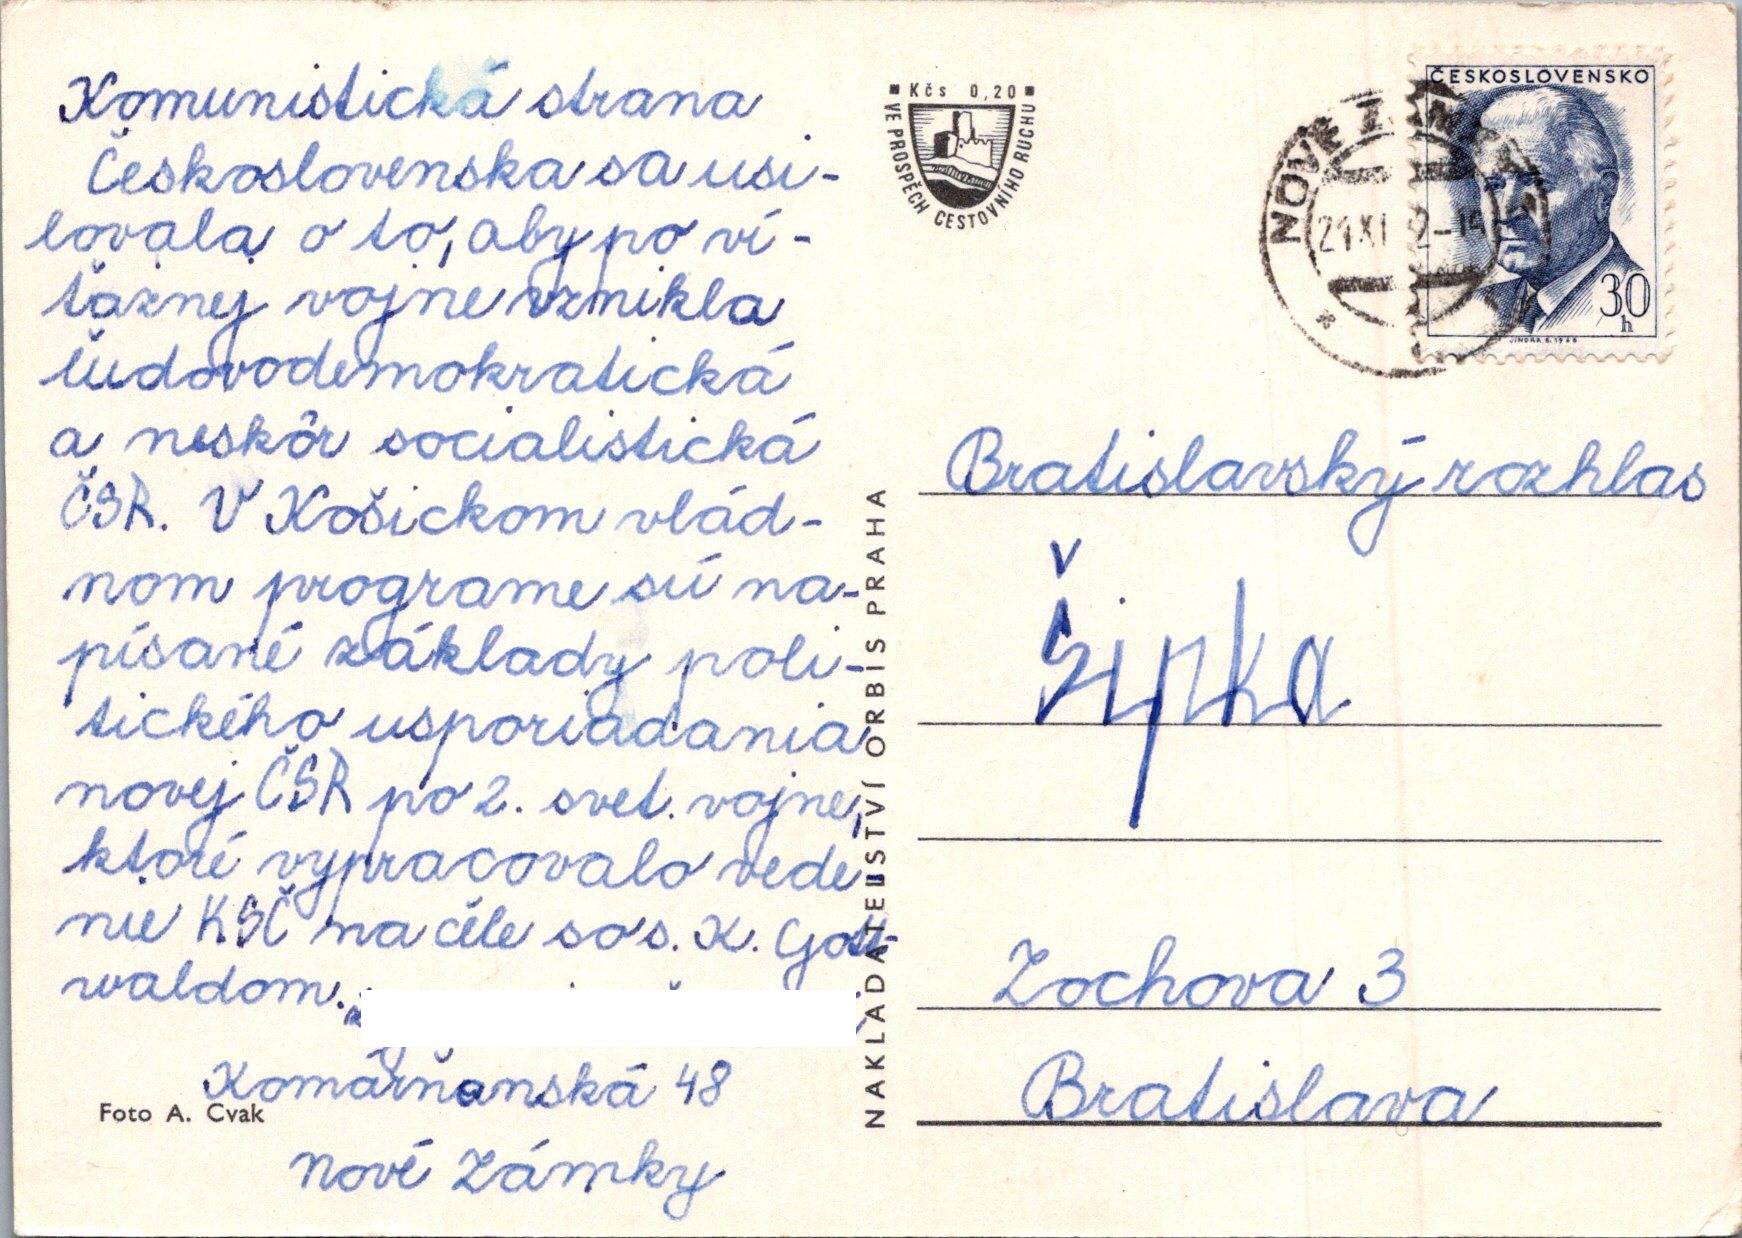 Komunistická strana
Československa sa usi-
lovala o to, aby po ví-
ťaznej vojne vznikla
ľudovodemokratická
a neskôr socialistická
ČSR. V Košickom vlád-
nom programe sú na-
písané základy poli-
tického usporiadania
novej ČSR po 2. svet. vojne,
ktoré vypracovalo vede-
nie KSČ na čele so s. K. Gott-
waldom.
Komárňanská 48
Nové Zámky
Foto A. Cvak
NAKLADATELSTVÍ ORBIS PRAHA
Kčs 0,20
VE PROSPĚCH CESTOVNÍHO RUCHU
ČESKOSLOVENSKO
30
h
JINDRA S. 1968
NOVÉ
21.XI
2-19
Bratislavský rozhlas
Šípka
Zochova 3
Bratislava